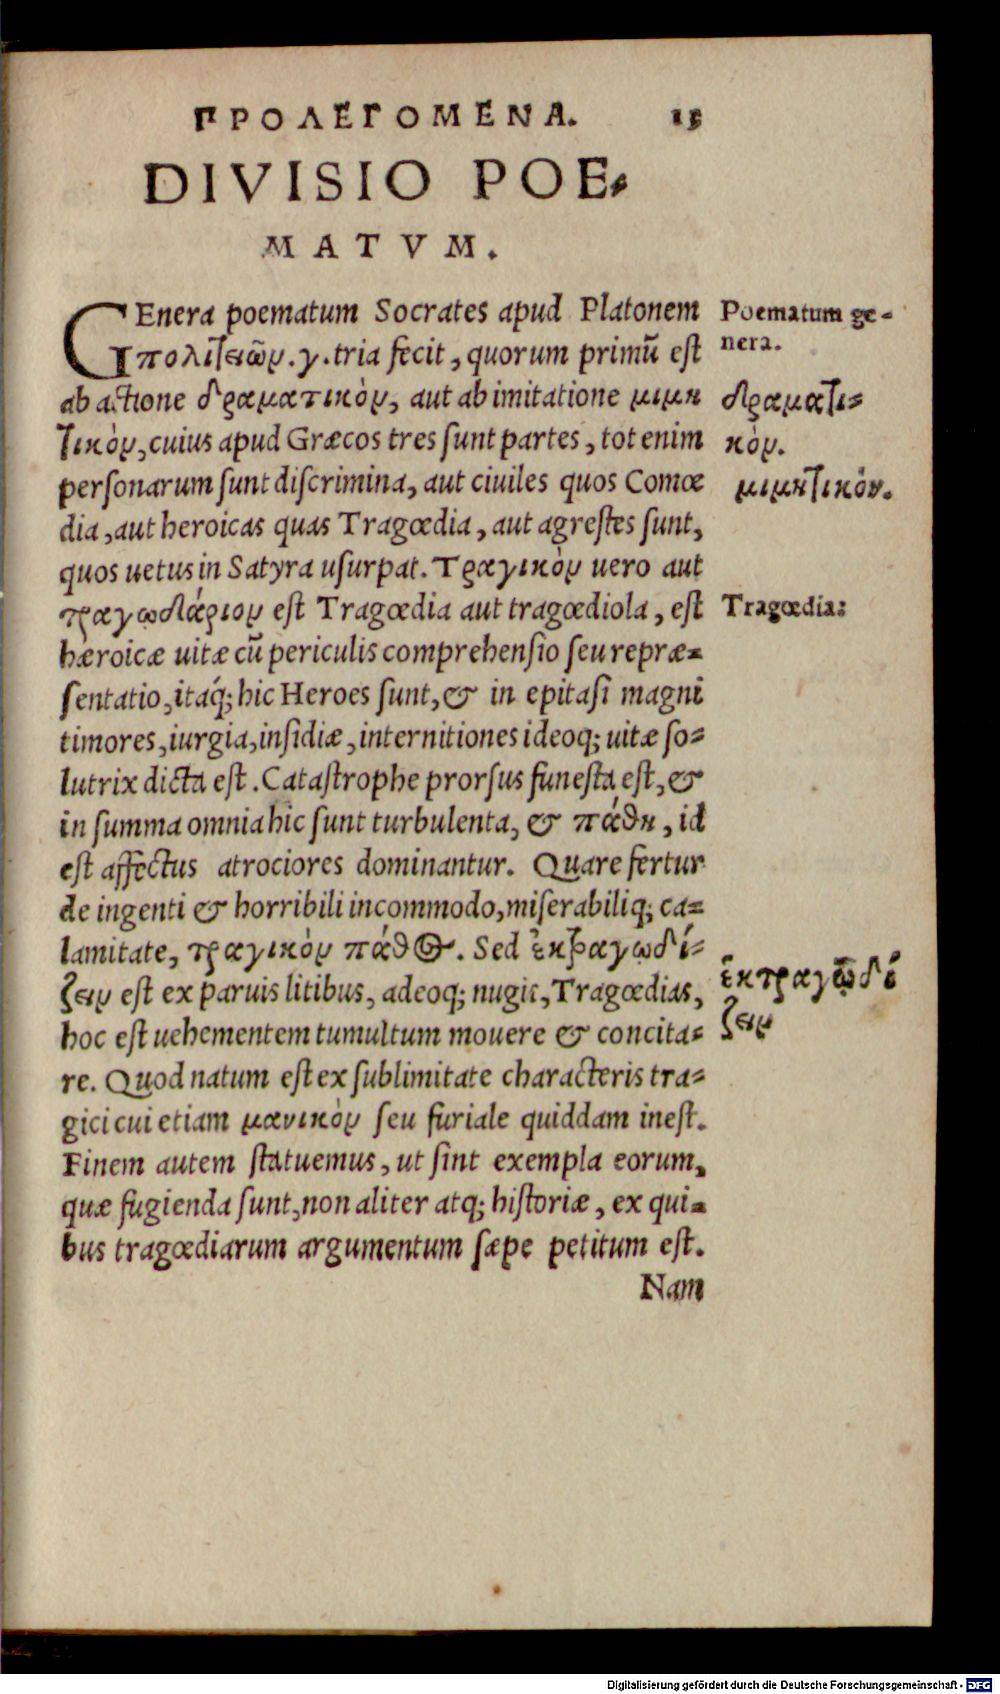 ΠΡΟΛΕΓΟΜΕΝΑ. 15
DIVISIO POE-
MATVM.
GEnera poematum Socrates apud Platonem
πολιτειῶν. γ. tria fecit, quorum primū est
ab actione δραματικὸν, aut ab imitatione μιμη
τικὸν, cuius apud Græcos tres sunt partes, tot enim
personarum sunt discrimina, aut ciuiles quos Comœ
dia, aut heroicas quas Tragœdia, aut agrestes sunt,
quos uetus in Satyra usurpat. Τραγικὸν uero aut
τραγωδάριον est Tragœdia aut tragœdiola, est
hæroicæ uitæ cū periculis comprehensio seu repræ-
sentatio, itaq́; hic Heroes sunt, & in epitasi magni
timores, iurgia, insidiæ, internitiones ideoq; uitæ so-
lutrix dicta est. Catastrophe prorsus funesta est, &
in summa omnia hic sunt turbulenta, & πάθη, id
est affectus atrociores dominantur. Quare fertur
de ingenti & horribili incommodo, miserabiliq; ca-
lamitate, τραγικὸν πάθος. Sed ἐκτραγωδί-
ζειν est ex paruis litibus, adeoq; nugis, Tragœdias,
hoc est uehementem tumultum mouere & concita-
re. Quod natum est ex sublimitate characteris tra-
gici cui etiam μανικὸν seu furiale quiddam inest.
Finem autem statuemus, ut sint exempla eorum,
quæ fugienda sunt, non aliter atq; historiæ, ex qui-
bus tragœdiarum argumentum sæpe petitum est.
Nam
Poematum ge-
nera.
δραματι-
κὸν.
μιμητικὸν.
Tragœdia:
ἐκτραγῳδί
ζειν
Digitalisierung gefördert durch die Deutsche Forschungsgemeinschaft - DFG